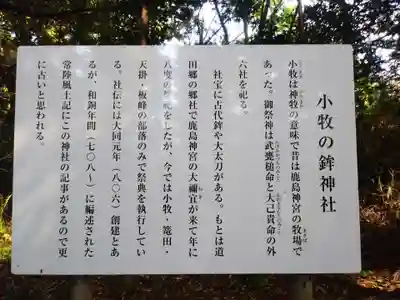 小牧の鉾神社
小牧は神牧の意味で昔は鹿島神宮の牧場で
あった。御祭神は武甕槌命と大己貴命の外
六社を祀る。
社宝に古代鉾や大太刀がある。もとは道
田郷の郷社で鹿島神宮の大禰宜が来て年に
八度の祭祀をしたが、今では小牧・篭田・
天掛・板峰の部落のみで祭典を執行してい
る。社伝には大同元年(八〇六)創建とあ
るが、和銅年間(七〇八~)に編述された
常陸風土記にこの神社の記事があるので更
に古いと思われる。